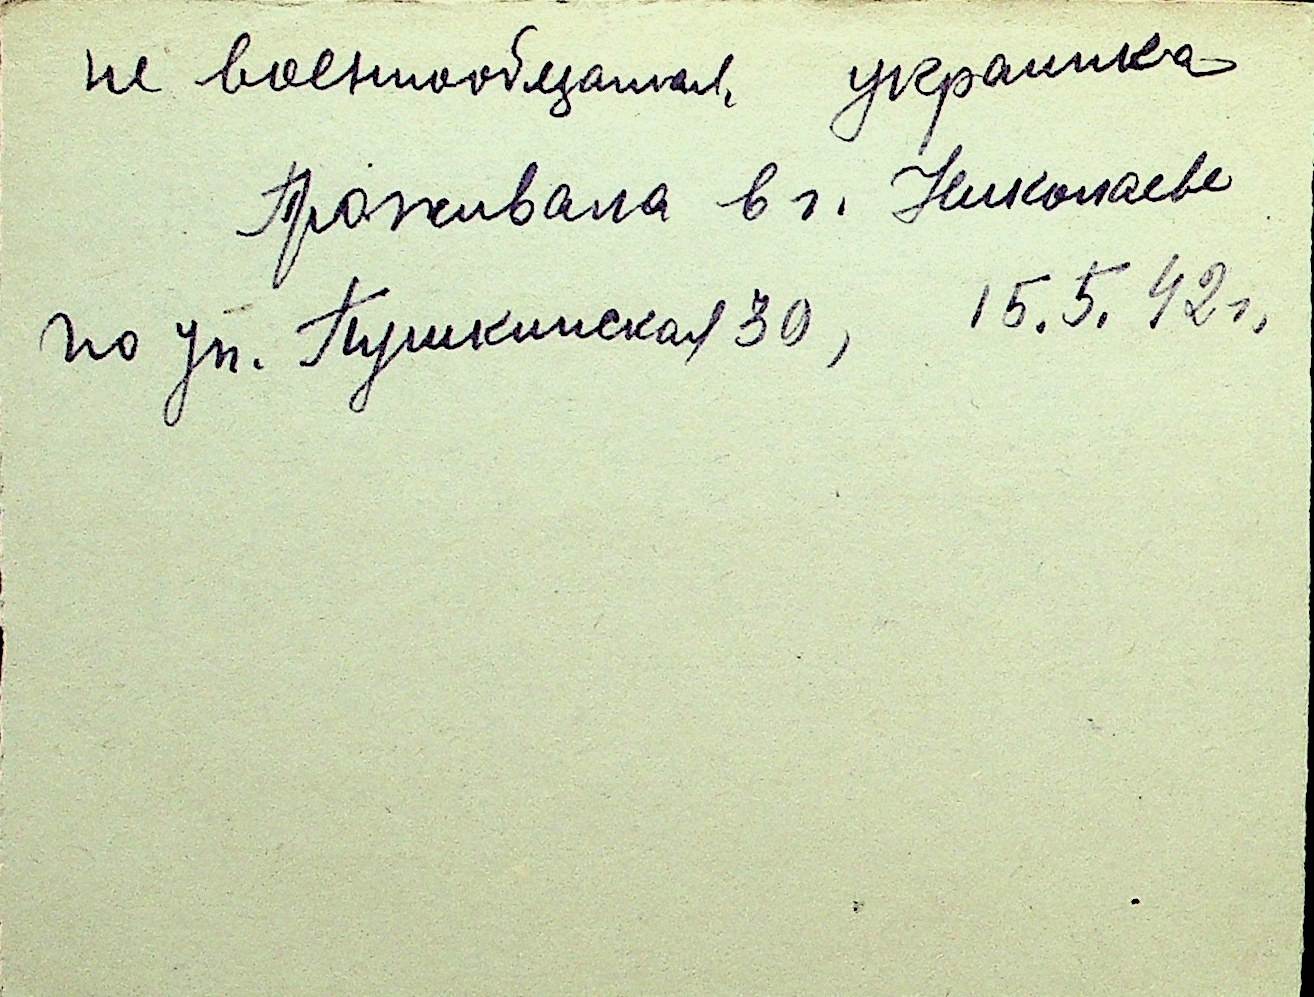 не военнообязаная, украинка
Проживала в г. Николаеве
по ул. Пушкинская 30, 15.5.42г.